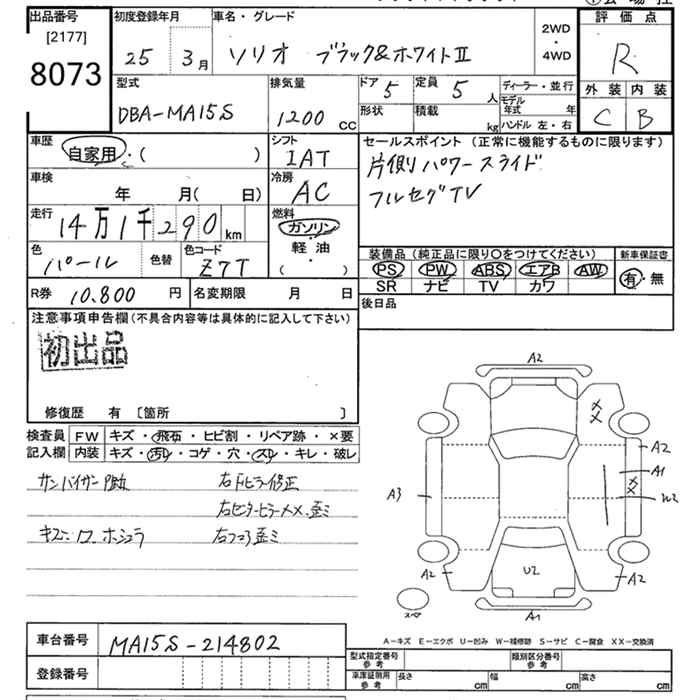 出品番号
[2177]
8073
初度登録年月
25 3月
車名・グレード
ソリオ ブラック&ホワイトⅡ
2WD
・
4WD
評価点
R
外装 内装
C B
型式
DBA-MA15S
排気量
1200 cc
ドア 5
定員 5 人
形状
積載 kg
ディーラー・並行
モデル年式 年
ハンドル 左・右
車歴
自家用・( )
シフト
IAT
車検
年 月( 日)
冷房
AC
走行
14万1千290km
燃料
ガソリン
・
軽・油
( )
色
パール
色替
色コード
Z7T
R券 10.800 円
名変期限 月 日
セールスポイント (正常に機能するものに限ります)
片側パワースライド
フルセグTV
装備品(純正品に限り○をつけてください)
新車保証書
PS PW ABS エアB AW
SR ナビ TV カワ
有・無
後日品
注意事項申告欄(不具合内容等は具体的に記入して下さい)
初出品
修復歴 有 [箇所 ]
検査員
記入欄
FW キズ・飛石・ヒビ割・リペア跡・×要
内装 キズ・汚れ・コゲ・穴・スレ・キレ・破レ
サンバイザー
右Fピラー修正
右センターピラー××.歪ミ
キズ
A2
A2
A1
A3
W2
A2
U2
A2
スペア
A1
A-キズ E-エクボ U-凹み W-補修跡 S-サビ C-腐食 XX-交換済
車台番号 MA15S-214802
登録番号
型式指定番号
参考
類別区分番号
参考
車庫証明用
参考
長さ cm
幅 cm
高さ cm